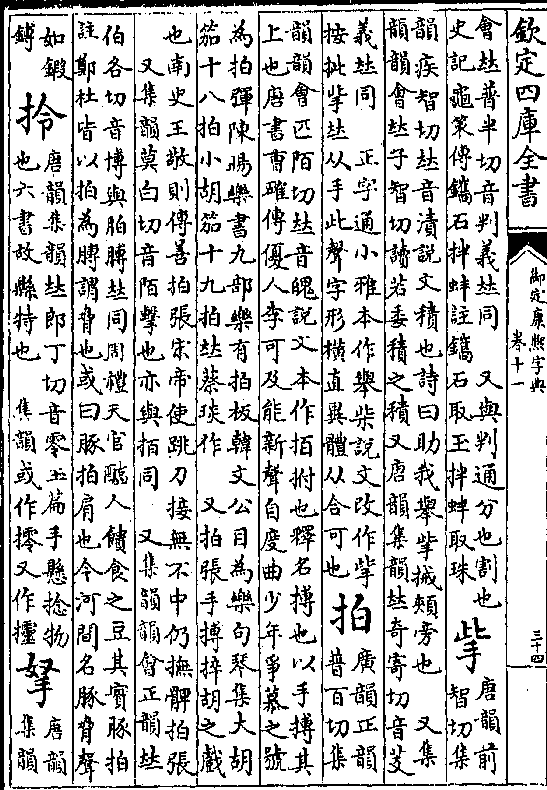 欽定四庫全書
御定康熙字典
卷十一
三十四
會𠀤普半切音判義𠀤同 又與判通分也割也
史記龜策傳鐫石拌蚌註鐫石取玉拌蚌取珠
掌
唐韻前
智切集
韻疾智切𠀤音漬說文積也詩曰助我舉掌搣頰旁也 又集
韻韻會𠀤子智切讀若委積之積又唐韻集韻𠀤奇寄切音芰
義𠀤同 正字通小雅本作舉柴說文改作掌
按批掌𠀤从手此聲字形横直異體从合可也
拍
廣韻正韻
普百切集
韻韻會匹陌切𠀤音魄說文本作拍拊也釋名搏也以手搏其
上也唐書曹確傳優人李可及能新聲自度曲少年爭慕之號
為拍彈陳暘樂書九部樂有拍板韓文公目為樂句琴集大胡
笳十八拍小胡笳十九拍𠀤蔡琰作 又拍張手搏捽胡之戲
也南史王敬則傳善拍張宋帝使跳刀接無不中仍撫髀拍張
又集韻莫白切音陌擊也亦與拍同 又集韻韻會正韻𠀤
伯各切音博與胉膊𠀤同周禮天官醢人饋食之豆其實豚拍
註鄭杜皆以拍為膊謂脅也或曰豚拍肩也今河間名豚脅聲
如鍛
鎛
拎
唐韻集韻𠀤郎丁切音零玉篇手懸捻物
也六書故縣持也 集韻或作㩕又作㩕
拏
唐韻
集韻